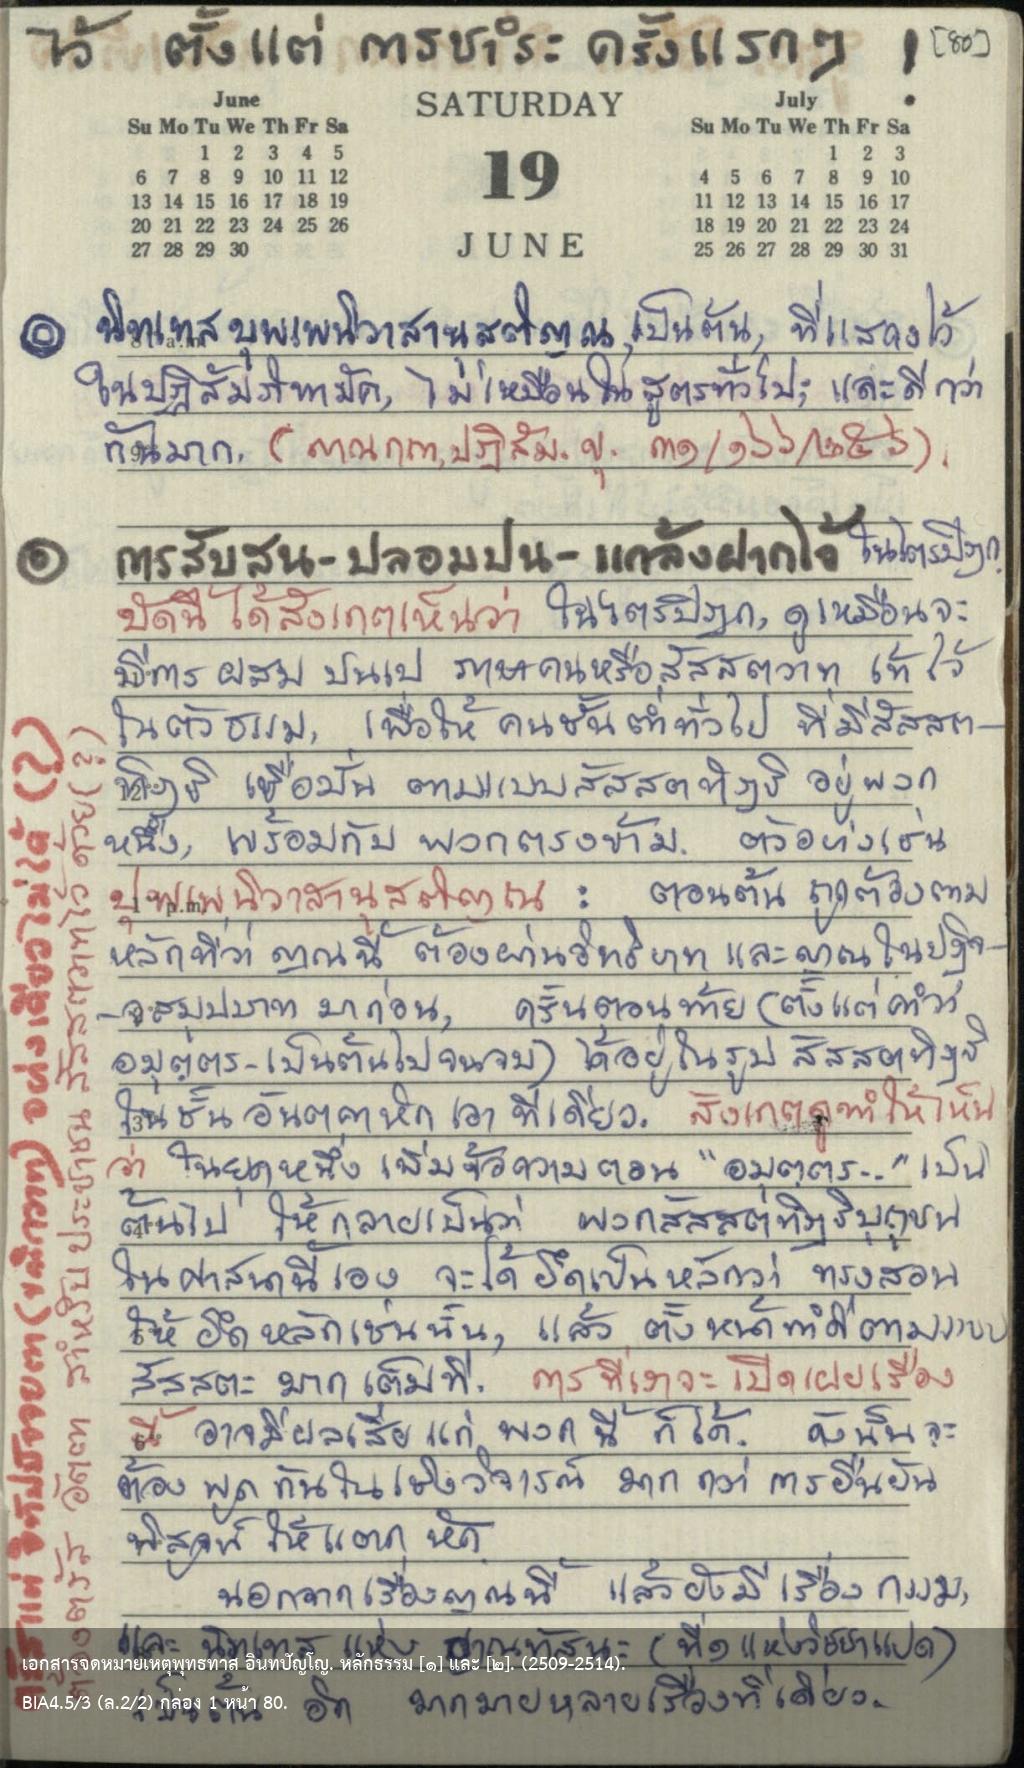 ไว้ ตั้งแต่ การชำระ ครั้งแรกๆ ! [80]
June SATURDAY July
Su Mo Tu We Th Fr Sa
1 2 3 4 5
6 7 8 9 10 11 12
13 14 15 16 17 18 19
20 21 22 23 24 25 26
27 28 29 30
19
JUNE
Su Mo Tu We Th Fr Sa
1 2 3
4 5 6 7 8 9 10
11 12 13 14 15 16 17
18 19 20 21 22 23 24
25 26 27 28 29 30 31
นิทเทส บุพเพนิวาสานุสสติญาณ เป็นต้น, ที่แสดงไว้
ในปฏิสัมภิทามัค, ไม่เหมือนในสูตรทั่วไป; และดีกว่า
กันมาก. ( ปฏิสัม. ขุ. ๓๑/๑๖๖/๒๕๖).
การสับสน-ปลอมปน-แกล้งฝากไว้ ในไตรปิฎก
บัดนี้ ได้สังเกตเห็นว่า ในไตรปิฎก, ดูเหมือนจะ
มีการ ผสม ปนเป ภาษาคนหรือสัสสตวาท เข้าไว้
ในตัวธรรม, เพื่อให้ คนชั้นต่ำทั่วไป ที่มีสัสสต-
ทิฏฐิ เชื่อมั่น ตามแบบสัสสตทิฏฐิ อยู่พวก
หนึ่ง, พร้อมกับ พวกตรงข้าม. ตัวอย่างเช่น
ปุพเพนิวาสานุสสติญาณ : ตอนต้น ถูกต้องตาม
หลักที่ว่า ญาณนี้ ต้องผ่านอิทธิบาท และญาณในปฏิจ-
-จสมุปบาท มาก่อน, ครั้นตอนท้าย (ตั้งแต่คำว่า
อมุตฺตร- เป็นต้นไปจนจบ) ได้อยู่ในรูป สัสสตทิฏฐิ
ในชั้น อันตคาหิก เอาทีเดียว. สังเกตดูทำให้เห็น
ว่า ในยุคหนึ่ง เพิ่มข้อความตอน "อมุตฺตร.." เป็น
ต้นไป ให้กลายเป็นว่า พวกสัสสตทิฏฐิบุถุชน
ในศาสนานี้เอง จะได้ ยึดเป็นหลักว่า ทรงสอน
ให้ ยึด หลักเช่นนั้น, แล้ว ตั้งหน้าทำดีตามแบบ
สัสสตะ มากเต็มที่. การที่เราจะ เปิดเผยเรื่อง
นี้ อาจมีผลเสีย แก่ พวกนี้ ก็ได้. ดังนั้นจะ
ต้อง พูด กันในเชิงวิจารณ์ มาก กว่า การยืนยัน
พิสูจน์ ให้แตกหัก.
นอกจากเรื่องญาณนี้ แล้วยังมี เรื่อง กรรม,
และ นิทเทส แห่ง ญาณทัสนะ (ที่๑ แห่งวิชชาแปด)
เป็นต้น อีก มากมายหลายเรื่องทีเดียว.
อย่างเดียวไม่ได้ (?)
ต้องตรัส อัตตา สำหรับ ประชาชน สัสสตวาทไว้ ด้วย(?)
เอกสารจดหมายเหตุพุทธทาส อินทปัญโญ. หลักธรรม [๑] และ [๒]. (2509-2514).
BIA4.5/3 (ล.2/2) กล่อง 1 หน้า 80.